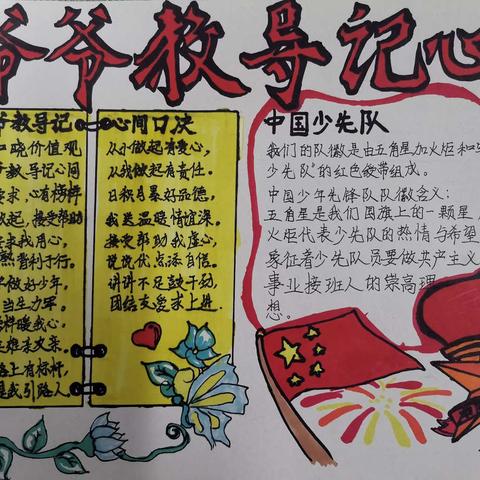 爷爷教导记心
爷教导记心间口决
知晓价值观
教导记心间
要求，心有榜样
做起，接受帮助
要求我用心，
熟背利于行。
做好少年，
当生力军。
榜样暖我心。
路上有标杆，
是我引路人。
从小做起有爱心，
从我做起有责任。
日积月累好品德，
我送温暖情谊深。
接受帮助我虚心，
说说优点添自信。
讲讲不足鼓干劲，
团结友爱求上进.
中国少先队
我们的队徽是由五角星加火炬和写
少先队"的红色绶带组成。
中国少年先锋队队徽含义：
五角星是我们国旗上的一颗星，
火炬代表少先队的热情与希望
象征着少先队员要做共产主义
事业接班人的崇高理
想.